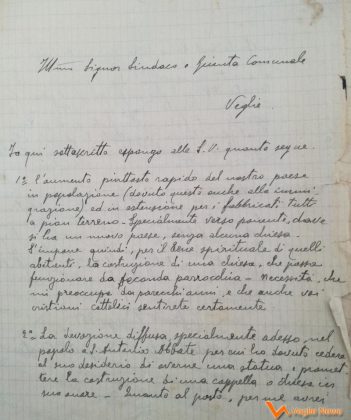 Ill.mo Signor Sindaco e Giunta Comunale
Veglie
Io qui sottoscritto espongo alle S.V. quanto segue.
1º L'aumento piuttosto rapido del nostro paese
in popolazione (dovuto questo anche alla immi-
grazione) ed in estensione per i fabbricati tutti
a pian terreno. Specialmente verso ponente, dove
si ha un nuovo paese, senza alcuna chiesa.
S'impone quindi, per il bene spirituale di quelli
abitanti, la costruzione di una chiesa, che possa
funzionare da seconda parrocchia - Necessità, che
mi preoccupa da parecchi anni, e che anche voi
cristiani cattolici sentirete certamente.
2º La devozione diffusa, specialmente adesso, nel
popolo a S. Antonio Abbate per cui ho dovuto cedere
al suo desiderio di averne una statua e promet-
tere la costruzione di una cappella o chiesa in
suo onore - Quanto al posto, per me avrei
Veglie News